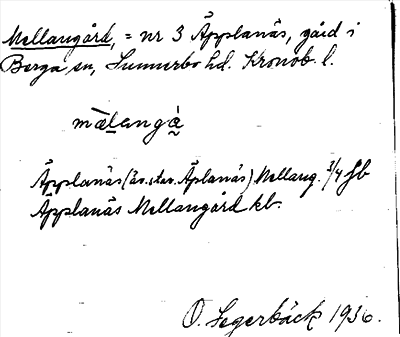 Mellangård, = nr 3 Äpplanäs, gård i
Berga sn, Sunnerbo hd. Kronob. l.
mälangà̰
Äpplanäs (äv. skr. Äplanäs) Mellang. 3/4 jb
Äpplanäs Mellangård kb.
O. Segerbäck 1936.